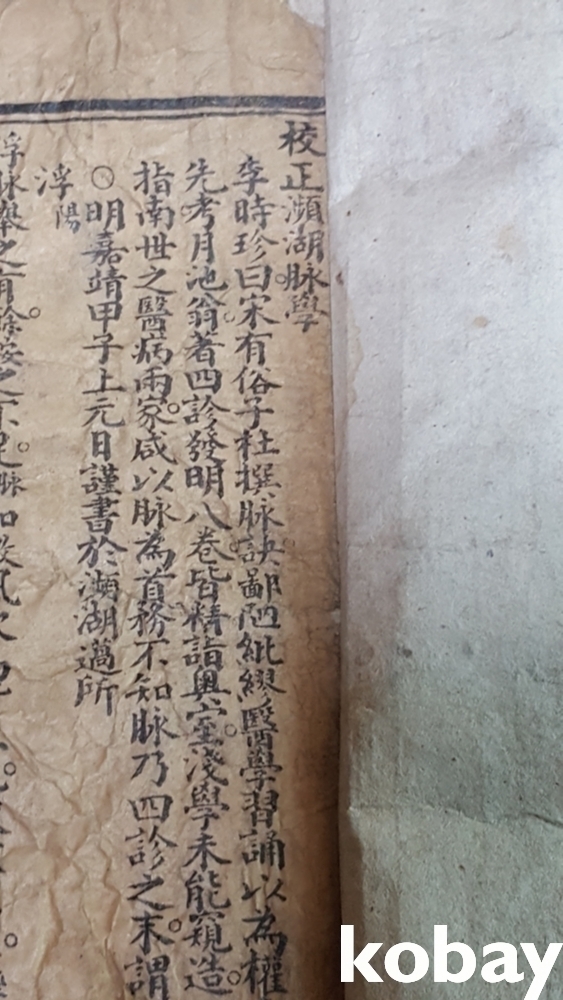 校正瀕湖脉學
李時珍曰宋有俗子杜撰脉訣鄙陋紕繆醫學習誦以為權
先考月池翁著四診發明八卷皆精詣奧室淺學未能窺造
指南世之醫病兩家咸以脉為首務不知脉乃四診之末謂
〇明嘉靖甲子上元日謹書於瀕湖薖所
浮陽
浮脉舉之有餘按之不足
kobay